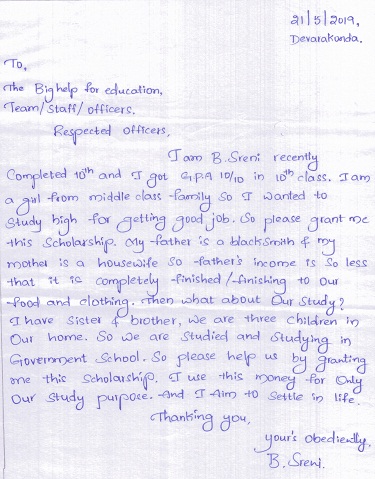 21/5/2019,
Devarakonda.
To,
The Big help for education,
Team/Staff/officers.
Respected officers,
I am B.Sreni recently
Completed 10th and I got G.P.A 10/10 in 10th class. I am
a girl from middle class family so I wanted to
Study high for getting good job. So please grant me
this Scholarship. My father is a blacksmith & my
mother is a housewife so father's income is so less
that it is completely finished/finishing to Our
food and clothing. Then what about Our study?
I have Sister & brother, we are three children in
Our home. So we are studied and studying in
Government School. So please help us by granting
me this Scholarship. I use this money for Only
Our study purpose. And I Aim to settle in life.
Thanking you,
your's obediently,
B.Sreni.